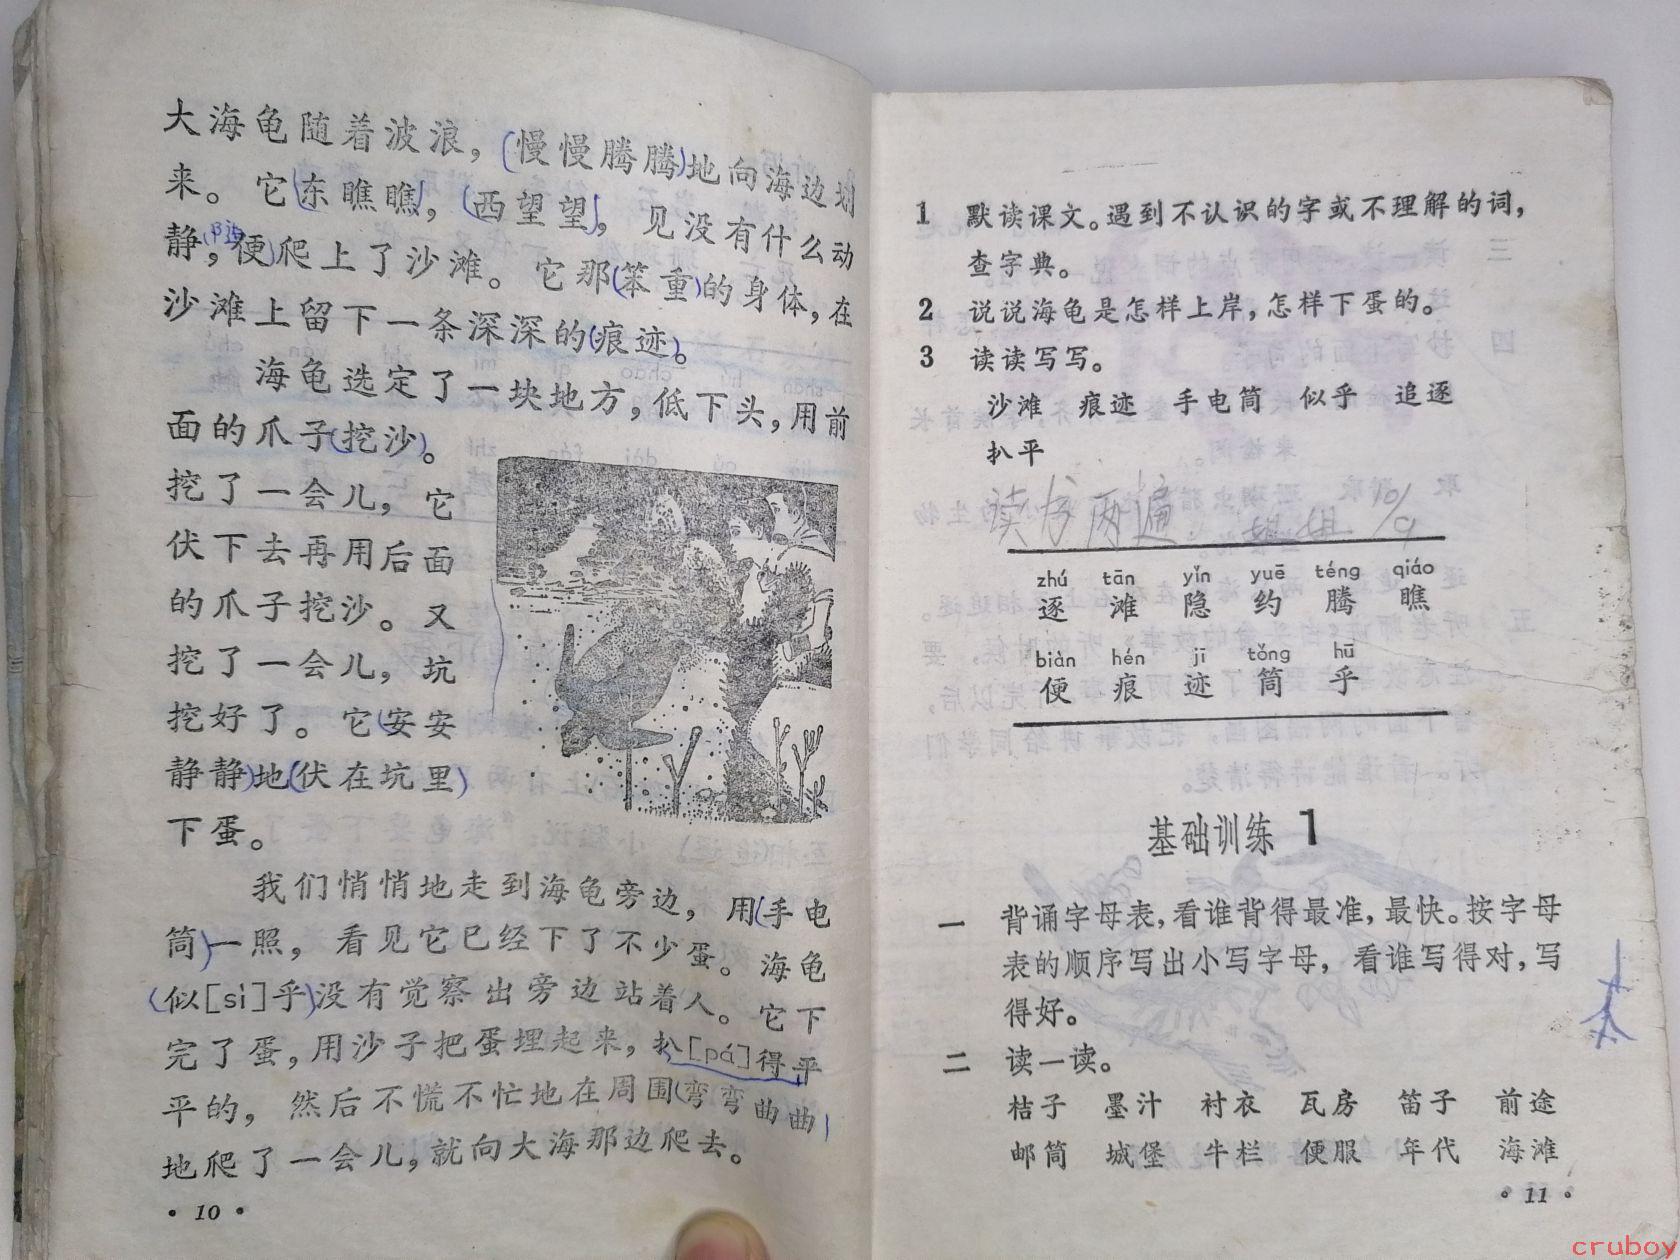 大海龟随着波浪，慢慢腾腾地向海边划
来。它东瞧瞧，西望望，见没有什么动
静，便爬上了沙滩。它那笨重的身体，在
沙滩上留下一条深深的痕迹。
海龟选定了一块地方，低下头，用前
面的爪子挖沙。
挖了一会儿，它
伏下去再用后面
的爪子挖沙。又
挖了一会儿，坑
挖好了。它安安
静静地伏在坑里
下蛋。
我们悄悄地走到海龟旁边，用手电
筒一照，看见它已经下了不少蛋。海龟
似[sì]乎没有觉察出旁边站着人。它下
完了蛋，用沙子把蛋埋起来，扒[pá]得平
平的，然后不慌不忙地在周围弯弯曲曲
地爬了一会儿，就向大海那边爬去。
• 10 •
1 默读课文。遇到不认识的字或不理解的词，
查字典。
2 说说海龟是怎样上岸，怎样下蛋的。
3 读读写写。
沙滩 痕迹 手电筒 似乎 追逐
扒平
读书两遍 姐 10/9
zhú tān yǐn yuē téng qiáo
逐 滩 隐 约 腾 瞧
biàn hén jī tǒng hū
便 痕 迹 筒 乎
基础训练 1
一 背诵字母表，看谁背得最准，最快。按字母
表的顺序写出小写字母，看谁写得对，写
得好。
二 读一读。
桔子 墨汁 衬衣 瓦房 笛子 前途
邮筒 城堡 牛栏 便服 年代 海滩
• 11 •
cruboy